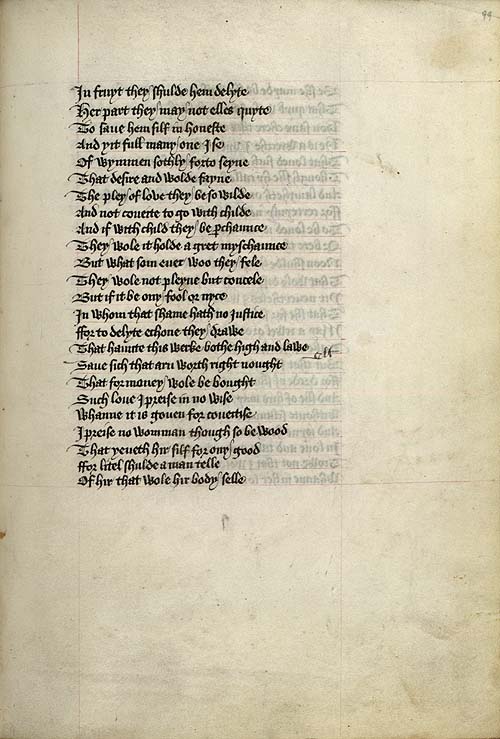 99
In fruyt they shulde hem delyte
Her part they may not elles quyte
To saue hem silf in honeste
And yit full many one I se
Of wymmen sothly forto seyne
That desire and wolde fayne
The pley of love they be so wilde
And not coueite to go with childe
And if with child they be ꝑchaunce
They wole it holde a gret myschaunce
But what som euer woo they fele
They wole not pleyne but concele
But if it be ony fool or nyce
In whom that shame hath no iustice
ffor to delyte echone they drawe
That haunte this werke bothe high and lawe
Saue sich that arn worth right nought
That for money wole be bought
Such loue I preise in no wise
Whanne it is gouen for coueitise
I preise no womman though so be wood
That yeueth hir silf for ony good
ffor litel shulde a man telle
Of hir that wole hir body selle